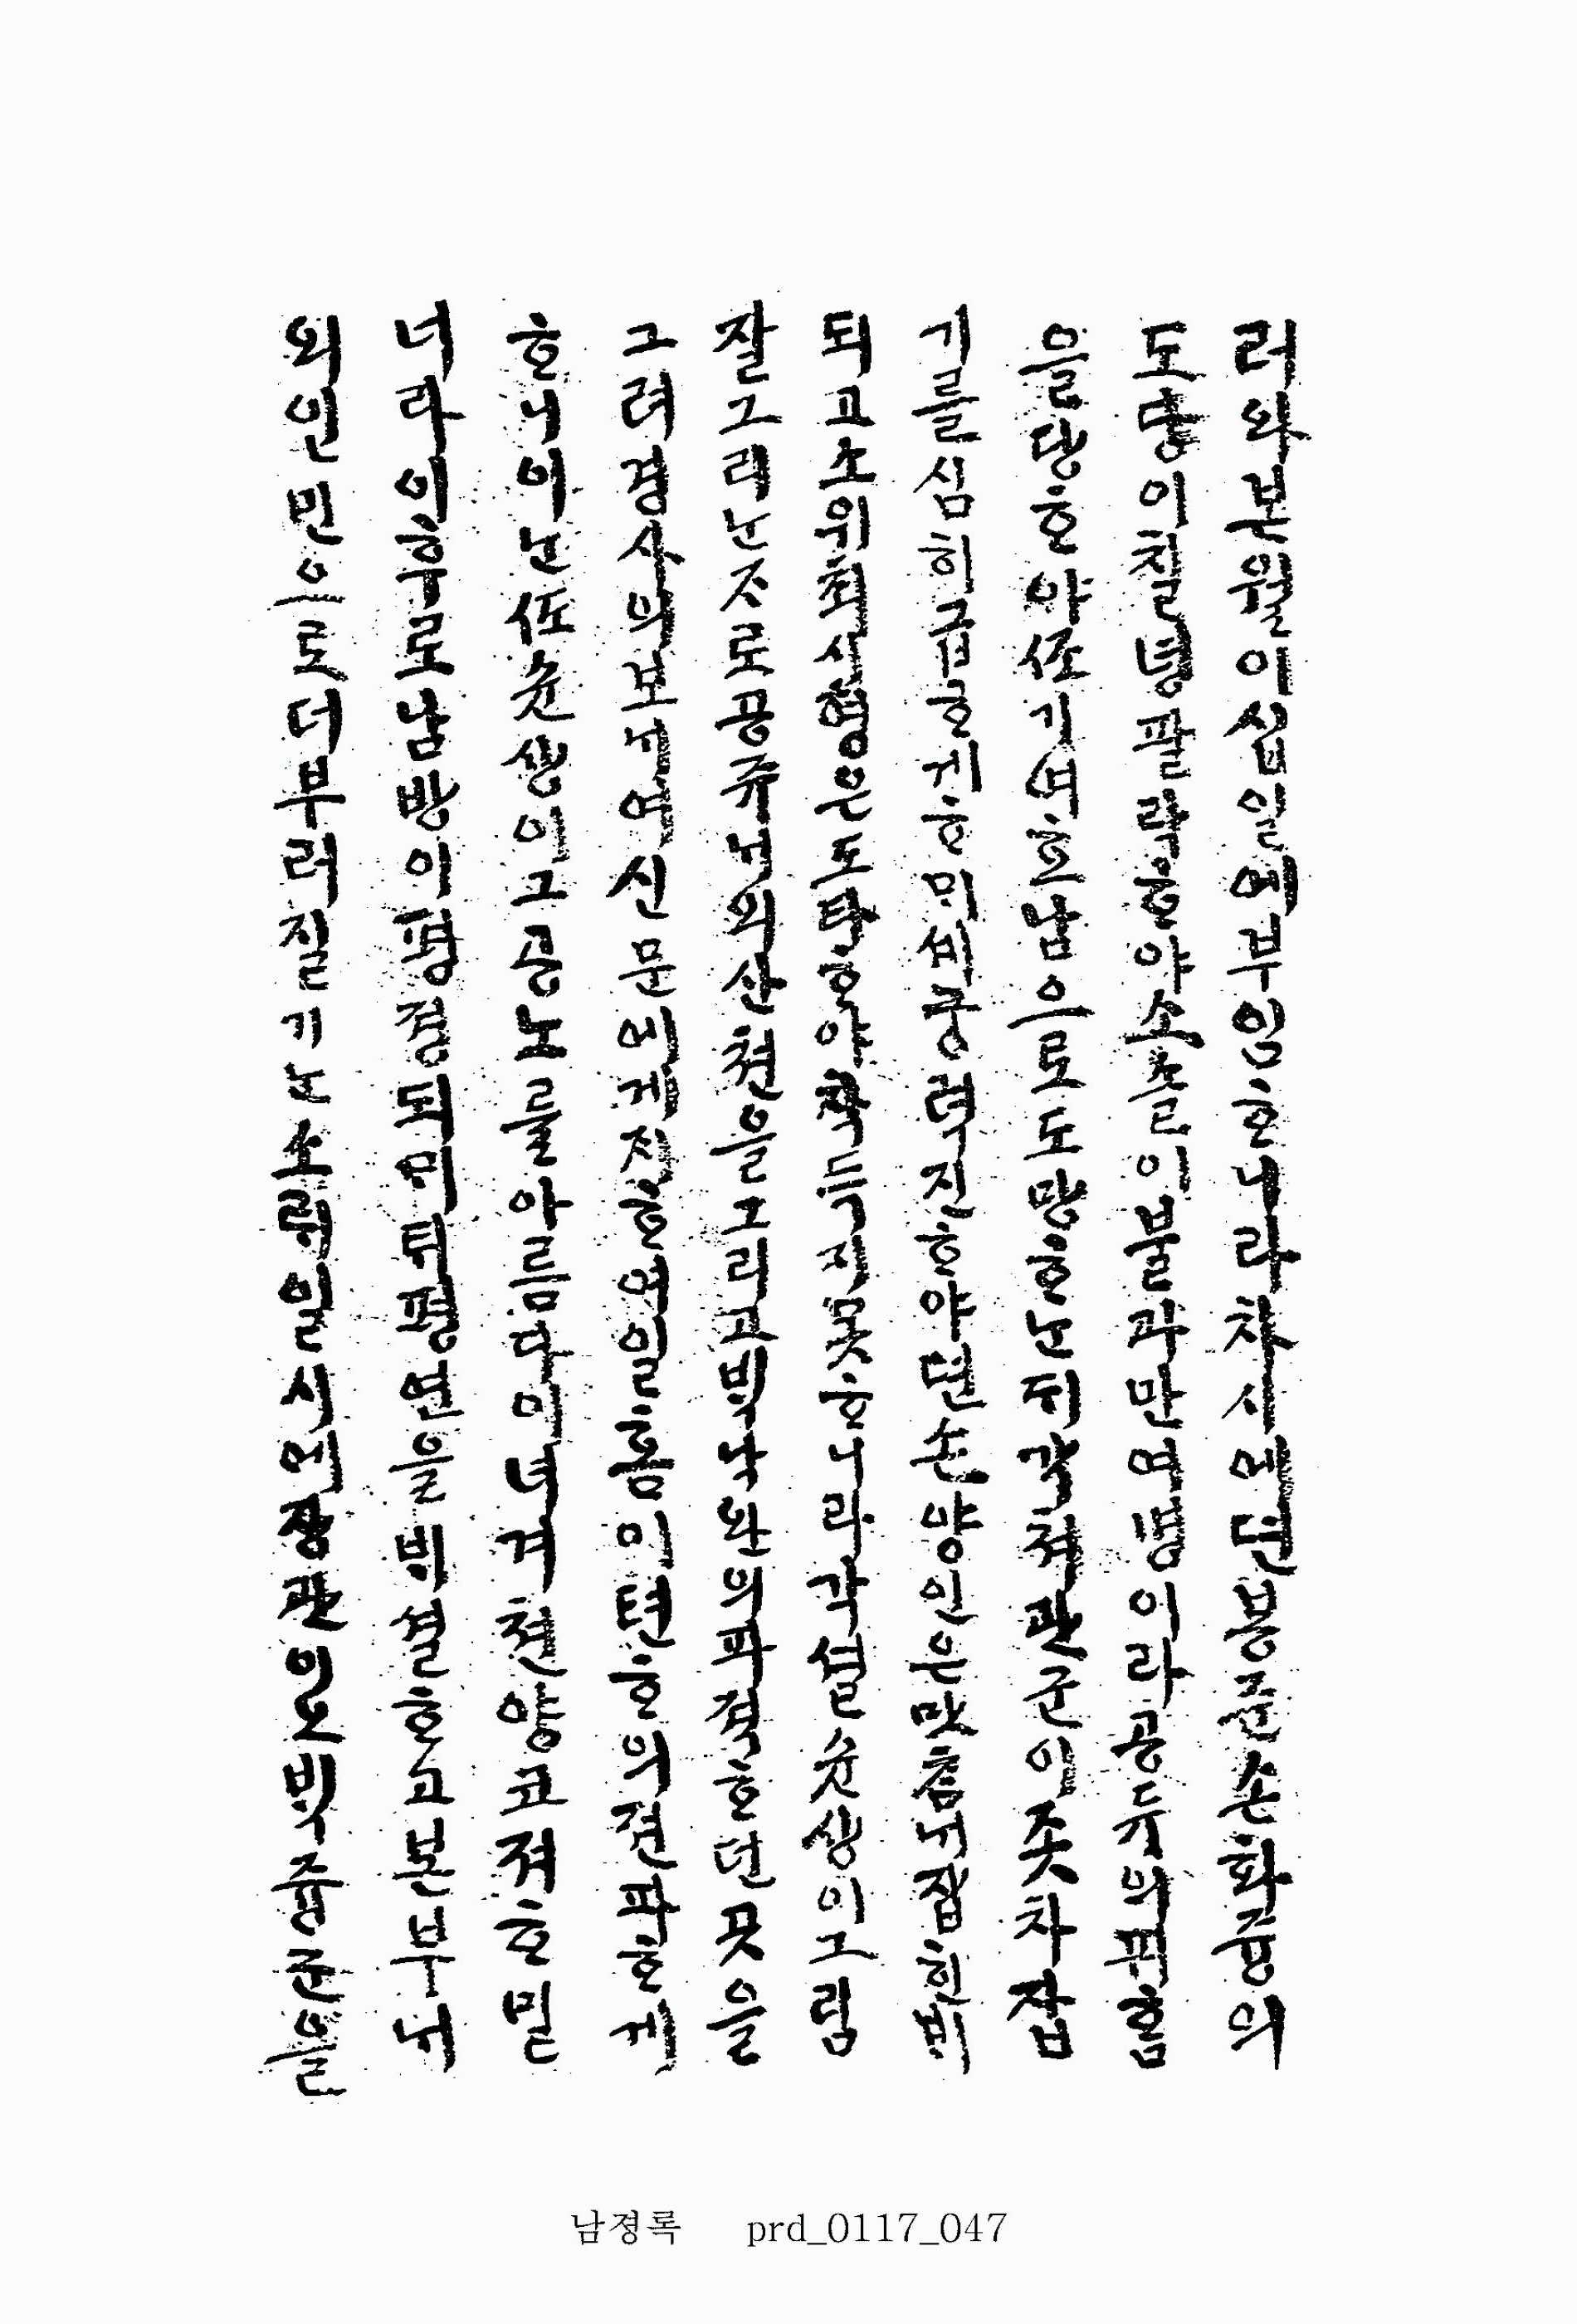 러와본월이십일에부임ᄒᆞ니라차시에뎐봉쥰손화즁의
도당이칠녕팔락ᄒᆞ야소솔이불과만여명이라공듀의픠홈
을당ᄒᆞ야侄기여호남으로도망ᄒᆞᄂᆞᆫ되각쳐관군이좃차잡
기를심히급ᄒᆞ게ᄒᆞᄆᆡ셰궁력진ᄒᆞ야뎐손양인은맛ᄎᆞᆷᄂᆡ잡힌ᄇᆡ
되고소위최시형은도타ᄒᆞ야착득지못ᄒᆞ니라각셜션생이그림
잘그리ᄂᆞᆫᄌᆞ로공쥬ᄂᆡ외산쳔을그리고ᄇᆡᆨ낙완의파젹ᄒᆞ던곳을
그려경사의보ᄂᆡ여신문에게ᄌᆡᄒᆞ여일홈이텬ᄒᆞ의젼파ᄒᆞ게
ᄒᆞ니이ᄂᆞᆫ侄션생이그공노를아름다이녀겨쳔양코져ᄒᆞ밀
너라이후로남방이평졍되ᄆᆡᄐᆡ평연을ᄇᆡ셜ᄒᆞ고본부ᄂᆡ
외인민으로더부러질기ᄂᆞᆫ소ᄅᆡ일시에쟝관일뇨ᄇᆡᆨ즁군을
남졍록 prd_0117_047